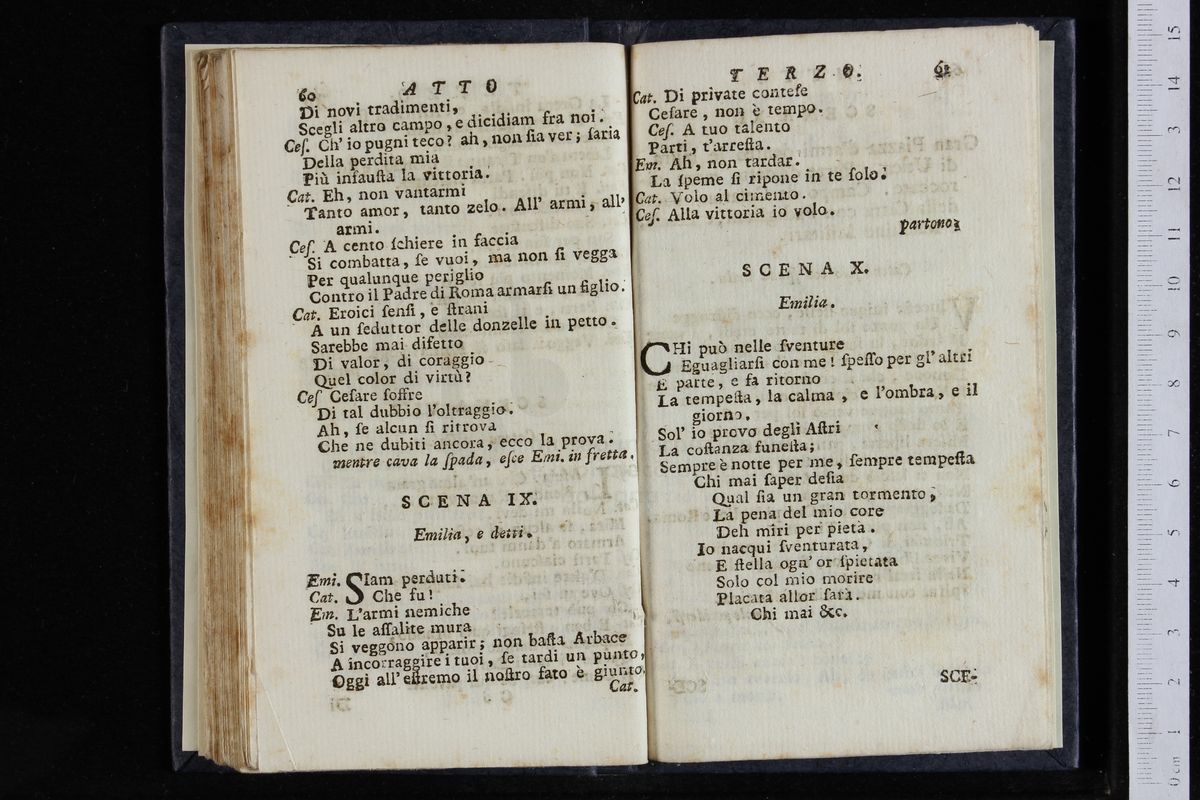 60 ATTO
Di novi tradimenti,
Scegli altro campo, e dicidiam fra noi.
Ceſ. Ch' io pugni teco? ah, non ſia ver; ſaria
Della perdita mia
Più infauſta la vittoria.
Cat. Eh, non vantarmi
Tanto amor, tanto zelo. All' armi, all'
armi.
Ceſ. A cento ſchiere in faccia
Si combatta, ſe vuoi, ma non ſi vegga
Per qualunque periglio
Contro il Padre di Roma armarſi un figlio.
Cat. Eroici ſenſi, e ſtrani
A un ſeduttor delle donzelle in petto.
Sarebbe mai difetto
Di valor, di coraggio
Quel color di virtù?
Ceſ Ceſare ſoffre
Di tal dubbio l'oltraggio.
Ah, ſe alcun ſi ritrova
Che ne dubiti ancora, ecco la prova.
mentre cava la ſpada, eſce Emi. in fretta.
SCENA IX.
Emilia, e detti.
Emi. SIam perduti.
Cat. Che fu!
Em. L'armi nemiche
Su le aſſalite mura
Si veggono apparir; non baſta Arbace
A incorraggire i tuoi, ſe tardi un punto,
Oggi all' eſtremo il noſtro fato è giunto.
Cat.
TERZO. 61
Cat. Di private conteſe
Ceſare, non è tempo.
Ceſ. A tuo talento
Parti, t'arreſta.
Em. Ah, non tardar.
La ſpeme ſi ripone in te ſolo.
Cat. Volo al cimento.
Ceſ. Alla vittoria io volo.
partono.
SCENA X.
Emilia.
CHi può nelle ſventure
Eguagliarſi con me! ſpeſſo per gl' altri
E parte, e fa ritorno
La tempeſta, la calma, e l'ombra, e il
giorno.
Sol' io provo degli Aſtri
La coſtanza funeſta;
Sempre è notte per me, ſempre tempeſta
Chi mai ſaper deſia
Qual ſia un gran tormento,
La pena del mio core
Deh miri per pietà.
Io nacqui ſventurata,
E ſtella ogn' or ſpietata
Solo col mio morire
Placata allor ſarà.
Chi mai &c.
SCE-